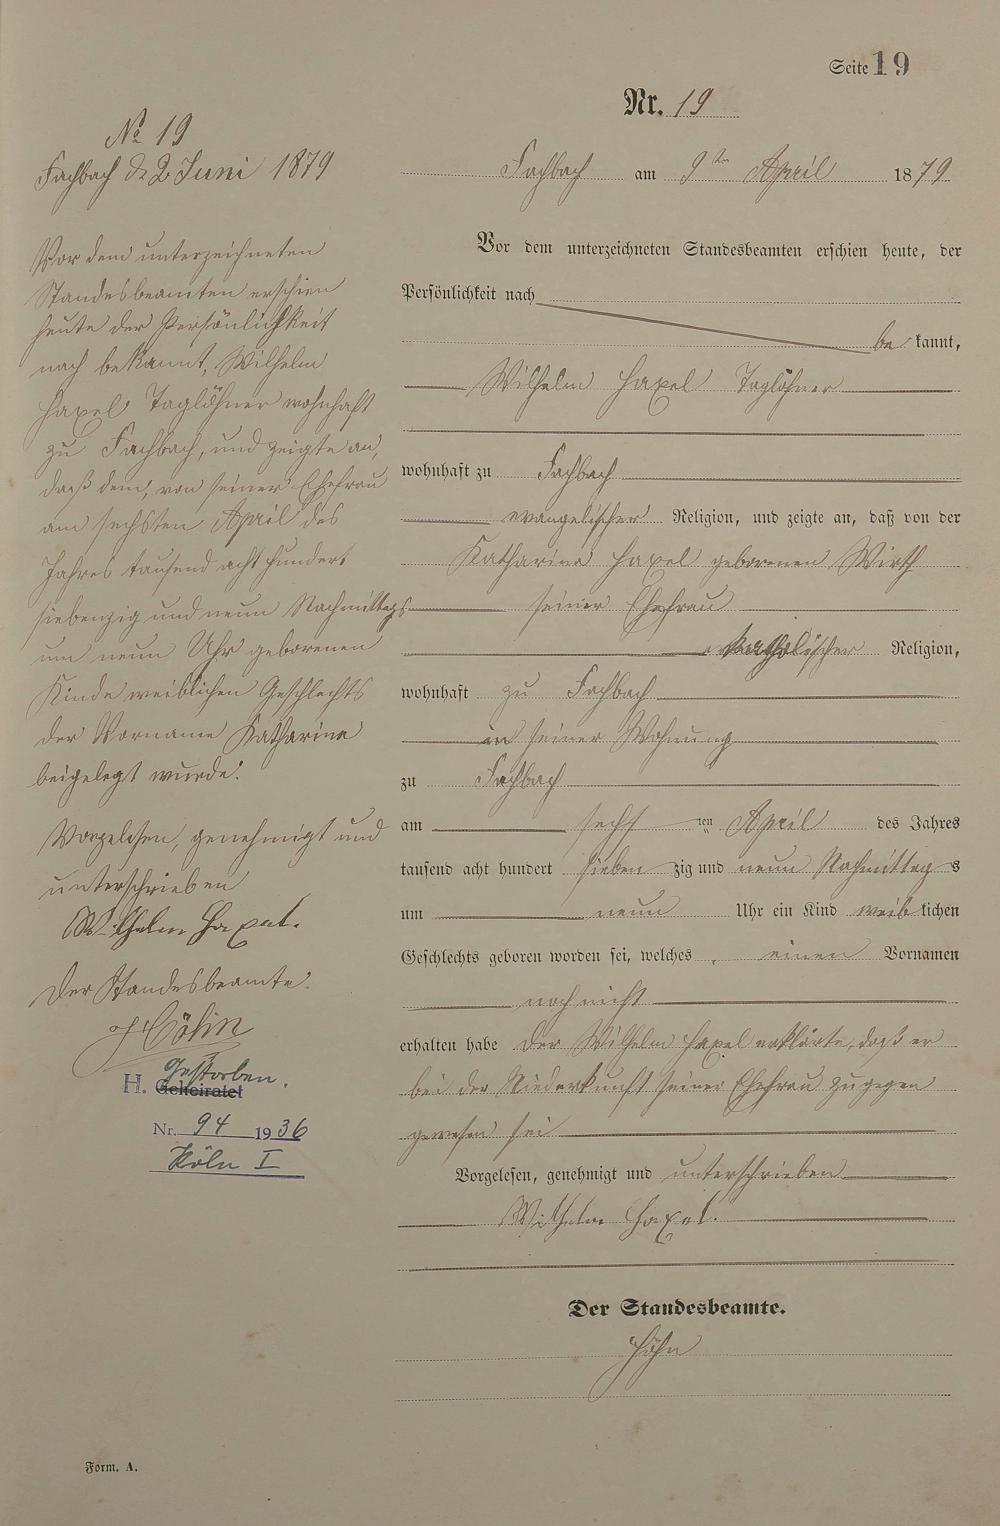 Seite 19
Nr. 19
Fachbach am 9ten April 1879
Vor dem unterzeichneten Standesbeamten erschien heute, der
Persönlichkeit nach
be kannt,
Wilhelm Haxel Taglöhner
wohnhaft zu Fachbach
evangelischer Religion, und zeigte an, daß von der
Katharina Haxel geborenen Wirth
seiner Ehefrau
katholischer Religion,
wohnhaft zu Fachbach
in seiner Wohnung
zu Fachbach
am sechs ten April des Jahres
tausend acht hundert sieben zig und neun Nachmittag s
um neun Uhr ein Kind weib lichen
Geschlechts geboren worden sei, welches einen Vornamen
noch nicht
erhalten habe Der Wilhelm Haxel erklärte, daß er
bei der Niederkunft seiner Ehefrau zugegen
gewesen sei
Vorgelesen, genehmigt und unterschrieben
Wilhelm Haxel.
Der Standesbeamte.
Höhn
No 19
Fachbach d. 2 Juni 1879
Vor dem unterzeichneten
Standesbeamten erschien
heute der Persönlichkeit
nach bekannt, Wilhelm
Haxel Taglöhner wohnhaft
zu Fachbach, und zeigte an,
daß dem, von seiner Ehefrau
am sechsten April des
Jahres tausend acht hundert
siebenzig und neun Nachmittags
um neun Uhr geborenen
Kinde weiblichen Geschlechts
der Vorname Katharina
beigelegt wurde.
Vorgelesen, genehmigt und
unterschrieben
Wilhelm Haxel.
Der Standesbeamte.
Höhn
Gestorben.
H. Geheiratet
Nr. 94 1936
Köln I
Form. A.